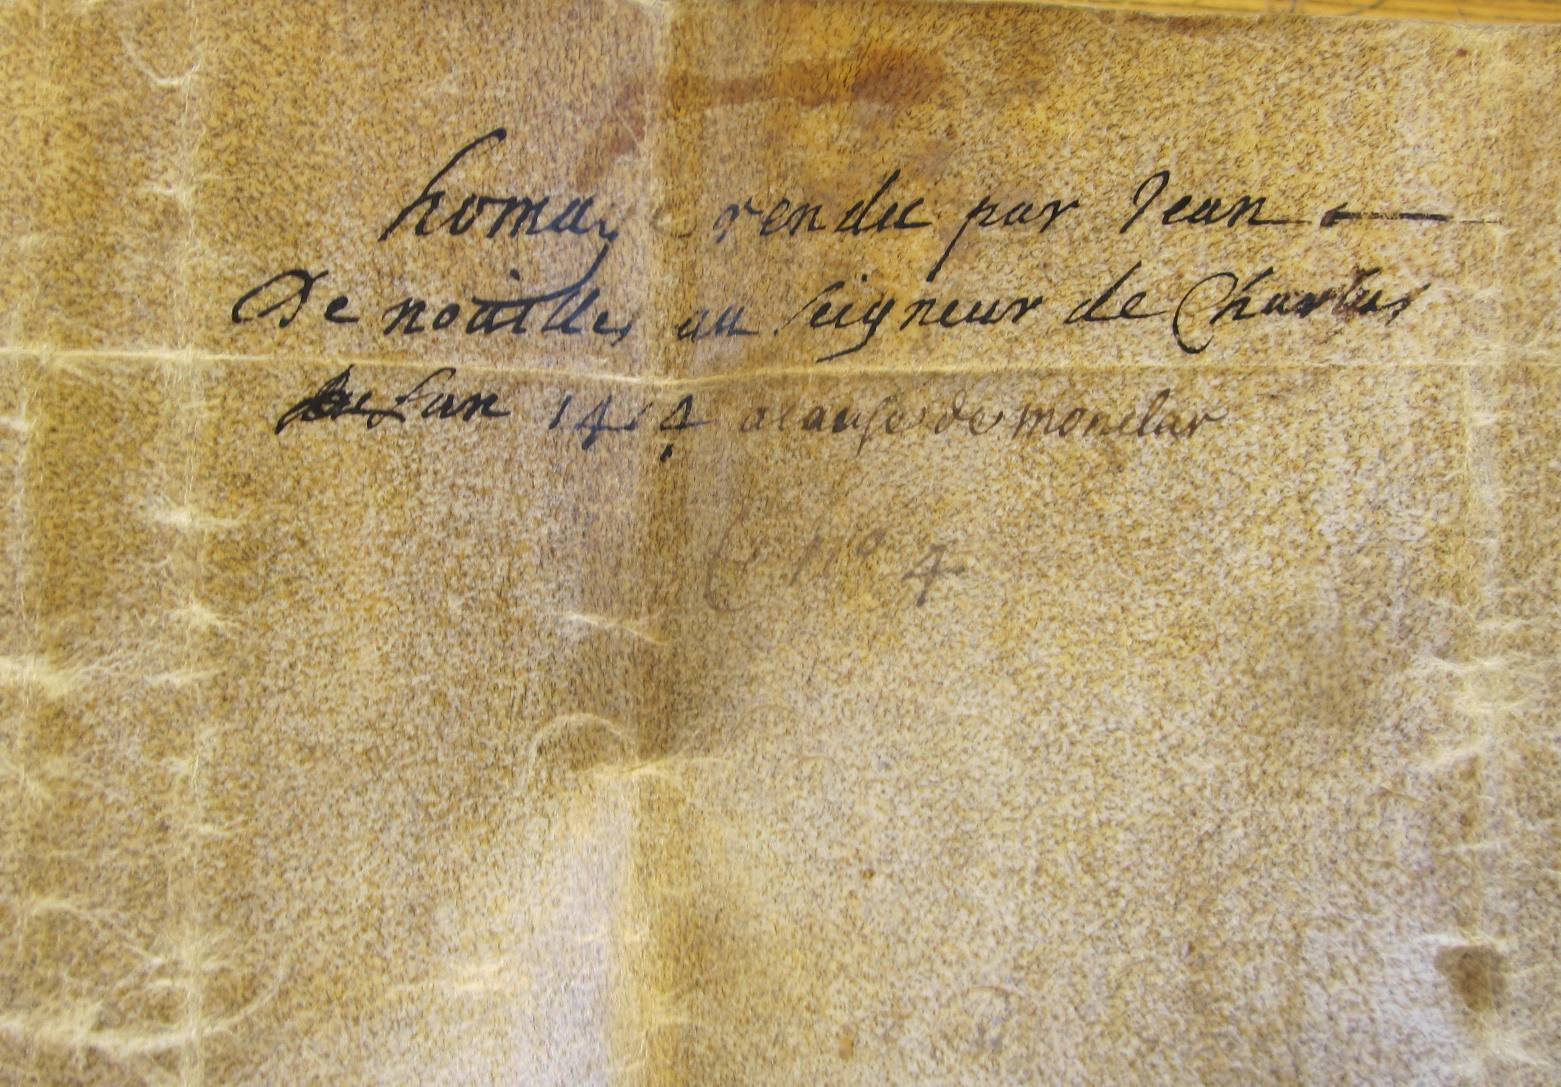 homag rendu par Jean
De noailles au seigneur de Charlus
lan 1414 a cause de monclar
C n° 4